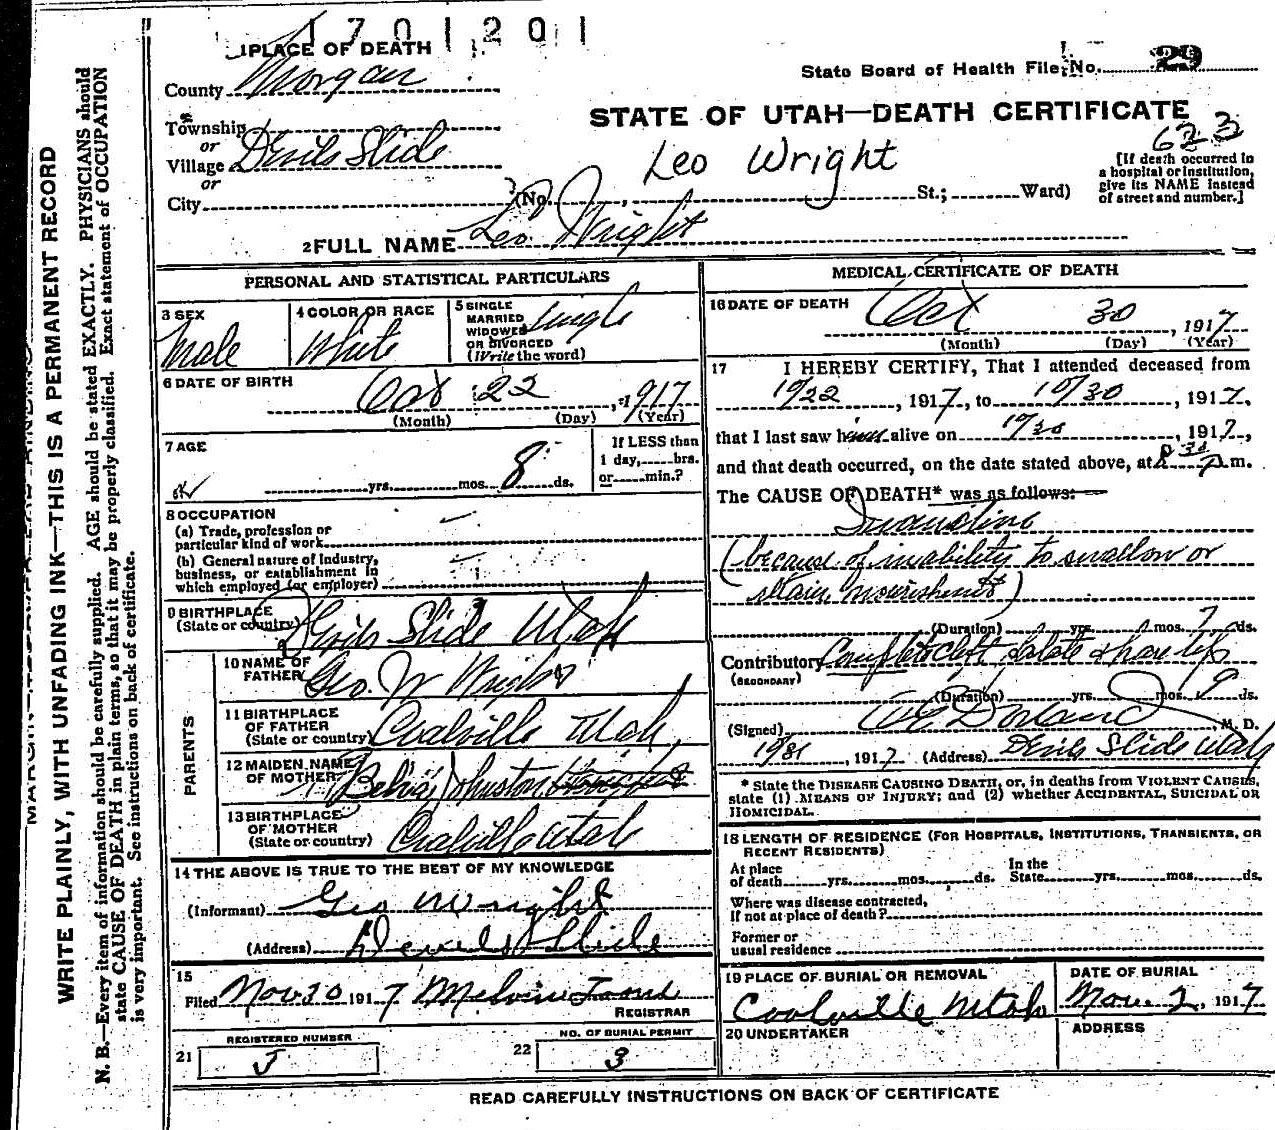 1701201
1 PLACE OF DEATH
County Morgan
Township
or
Village Devils Slide
or
City (No. , St.; Ward)
State Board of Health File No. 29
STATE OF UTAH—DEATH CERTIFICATE
623
Leo Wright
[If death occurred in
a hospital or institution,
give its NAME instead
of street and number.]
2 FULL NAME Leo Wright
PERSONAL AND STATISTICAL PARTICULARS
3 SEX
Male
4 COLOR OR RACE
White
5 SINGLE
MARRIED
WIDOWED
OR DIVORCED
(Write the word)
Single
6 DATE OF BIRTH
Oct 22, 1917
(Month) (Day) (Year)
7 AGE
yrs. mos. 8 ds.
If LESS than
1 day, hrs.
or min.?
8 OCCUPATION
(a) Trade, profession or
particular kind of work
(b) General nature of industry,
business, or establishment in
which employed (or employer)
9 BIRTHPLACE
(State or country) Devils Slide Utah
PARENTS
10 NAME OF
FATHER Geo. W Wright
11 BIRTHPLACE
OF FATHER
(State or country) Coalville Utah
12 MAIDEN NAME
OF MOTHER Belva Johnston
13 BIRTHPLACE
OF MOTHER
(State or country) Coalville Utah
14 THE ABOVE IS TRUE TO THE BEST OF MY KNOWLEDGE
(Informant) Geo W Wright
(Address) Devils Slide
15
Filed Nov 30 1917 Melvin
REGISTRAR
21 REGISTERED NUMBER
J
22 NO. OF BURIAL PERMIT
3
MEDICAL CERTIFICATE OF DEATH
16 DATE OF DEATH
Oct 30, 1917
(Month) (Day) (Year)
17 I HEREBY CERTIFY, That I attended deceased from
10/22, 1917, to 10/30, 1917,
that I last saw him alive on 10/30, 1917,
and that death occurred, on the date stated above, at 8 30 P.m.
The CAUSE OF DEATH* was as follows:
Inanition
(because of inability to swallow or
retain nourishment)
(Duration) yrs. mos. 7 ds.
Contributory Complete cleft palate & hare lip
(SECONDARY)
(Duration) yrs. mos. 9 ds.
(Signed) Dorland M. D.
10/31, 1917 (Address) Devils Slide Utah
* State the DISEASE CAUSING DEATH, or, in deaths from VIOLENT CAUSES,
state (1) MEANS OF INJURY; and (2) whether ACCIDENTAL, SUICIDAL OR
HOMICIDAL.
18 LENGTH OF RESIDENCE (FOR HOSPITALS, INSTITUTIONS, TRANSIENTS, OR
RECENT RESIDENTS)
At place
of death yrs. mos. ds.
In the
State yrs. mos. ds.
Where was disease contracted,
If not at place of death?
Former or
usual residence
19 PLACE OF BURIAL OR REMOVAL
Coalville Utah
DATE OF BURIAL
Nov. 2, 1917
20 UNDERTAKER
ADDRESS
READ CAREFULLY INSTRUCTIONS ON BACK OF CERTIFICATE
WRITE PLAINLY, WITH UNFADING INK—THIS IS A PERMANENT RECORD
N. B.—Every item of information should be carefully supplied. AGE should be stated EXACTLY. PHYSICIANS should
state CAUSE OF DEATH in plain terms, so that it may be properly classified. Exact statement of OCCUPATION
is very important. See instructions on back of certificate.